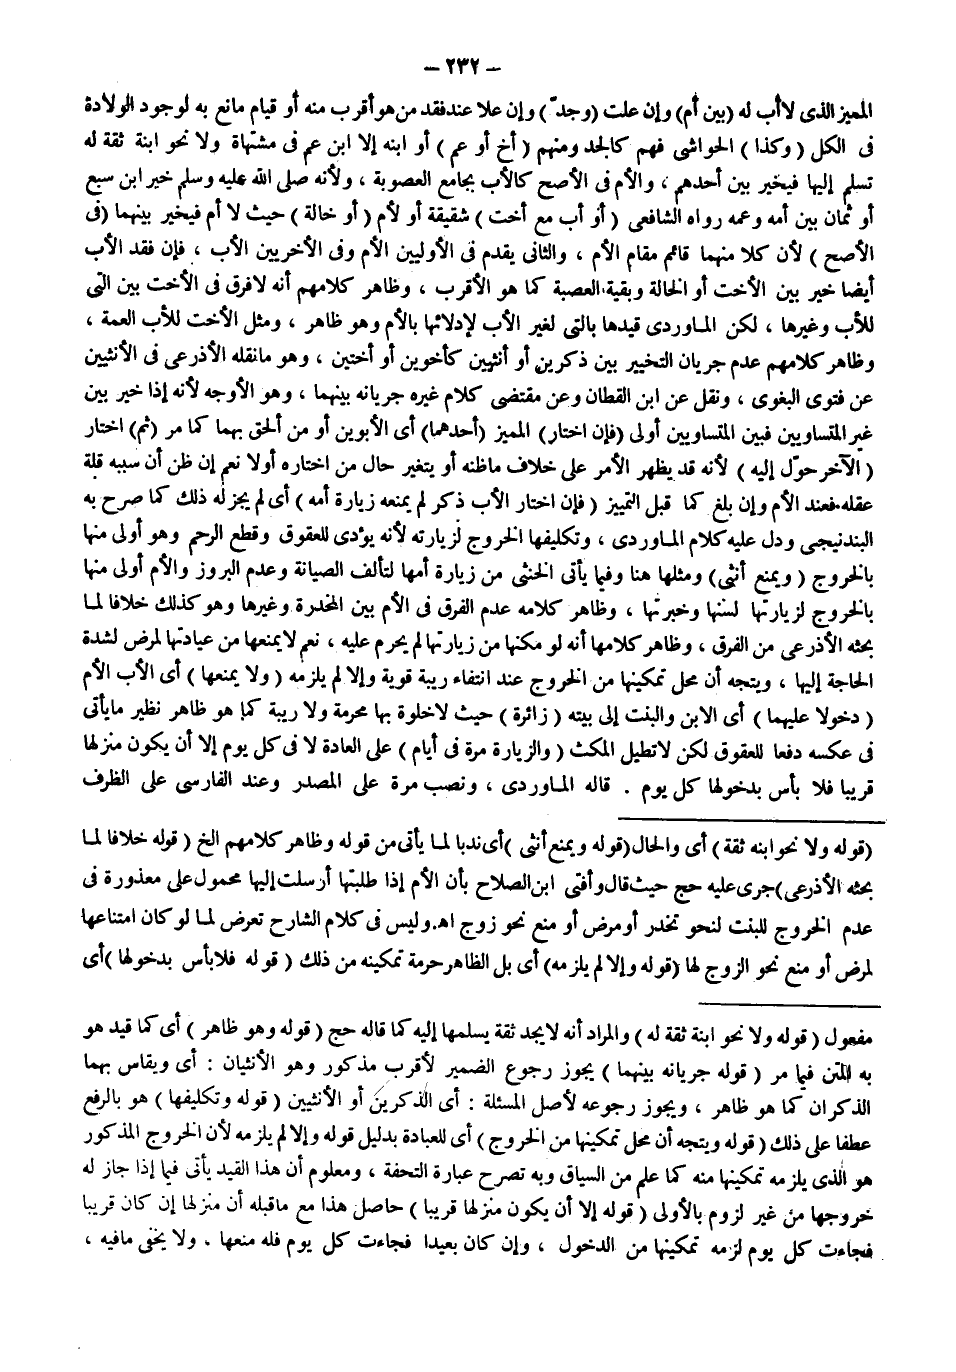 – ٢٣٢ –
المميز الذى لاأب له (بين أم) وإن علت (وجدّ) وإن علا عندفقد من هو أقرب منه أو قيام مانع به لوجود الولادة
فى الكل (وكذا) الحواشى فهم كالجد ومنهم (أخ أو عم) أو ابنه إلا ابن عم فى مشتهاة ولا نحو ابنة ثقة له
تسلم إليها فيخير بين أحدهم، والأم فى الأصح كالأب بجامع العصوبة، ولأنه صلى الله عليه وسلم خير ابن سبع
أو ثمان بين أمه وعمه رواه الشافعى (أو أب مع أخت) شقيقة أو لأم (أو خالة) حيث لا أم فيخير بينهما (فى
الأصح) لأن كلا منهما قائم مقام الأم، والثانى يقدم فى الأوليين الأم وفى الأخريين الأب، فإن فقد الأب
أيضا خير بين الأخت أو الخالة وبقية العصبة كما هو الأقرب، وظاهر كلامهم أنه لافرق فى الأخت بين التى
للأب وغيرها، لكن الماوردى قيدها بالتى لغير الأب لإدلائها بالأم وهو ظاهر، ومثل الأخت للأب العمة،
وظاهر كلامهم عدم جريان التخيير بين ذكرين أو أنثيين كأخوين أو أختين، وهو مانقله الأذرعى فى الأنثيين
عن فتوى البغوى، ونقل عن ابن القطان وعن مقتضى كلام غيره جريانه بينهما، وهو الأوجه لأنه إذا خير بين
غير المتساويين فبين المتساويين أولى (فإن اختار) المميز (أحدهما) أى الأبوين أو من ألحق بهما كما مر (ثم) اختار
(الآخر حوّل إليه) لأنه قد يظهر الأمر على خلاف ماظنه أو يتغير حال من اختاره أولا نعم إن ظن أن سببه قلة
عقله فعند الأم وإن بلغ كما قبل التمييز (فإن اختار الأب ذكر لم يمنعه زيارة أمه) أى لم يجز له ذلك كما صرح به
البندنيجى ودل عليه كلام الماوردى، وتكليفها الخروج لزيارته لأنه يؤدى للعقوق وقطع الرحم وهو أولى منها
بالخروج (ويمنع أنثى) ومثلها هنا وفيما يأتى الخنثى من زيارة أمها لتألف الصيانة وعدم البروز والأم أولى منها
بالخروج لزيارتها لسنها وخبرتها، وظاهر كلامه عدم الفرق فى الأم بين المخدرة وغيرها وهو كذلك خلافا لما
بحثه الأذرعى من الفرق، وظاهر كلامها أنه لو مكنها من زيارتها لم يحرم عليه، نعم لايمنعها من عيادتها لمرض لشدة
الحاجة إليها، ويتجه أن محل تمكينها من الخروج عند انتفاء ريبة قوية وإلا لم يلزمه (ولا يمنعها) أى الأب الأم
(دخولا عليهما) أى الابن والبنت إلى بيته (زائرة) حيث لاخلوة بها محرمة ولا ريبة كما هو ظاهر نظير مايأتى
فى عكسه دفعا للعقوق لكن لاتطيل المكث (والزيارة مرة فى أيام) على العادة لا فى كل يوم إلا أن يكون منزلها
قريبا فلا بأس بدخولها كل يوم. قاله الماوردى، ونصب مرة على المصدر وعند الفارسى على الظرف
(قوله ولا نحوابنه ثقة) أى والحال (قوله ويمنع أنثى) أى ندبا لما يأتى من قوله وظاهر كلامهم الخ (قوله خلافا لما
بحثه الأذرعى) جرى عليه حج حيث قال وأفتى ابن الصلاح بأن الأم إذا طلبتها أرسلت إليها محمول على معذورة فى
عدم الخروج للبنت لنحو تخدر أو مرض أو منع نحو زوج اه. وليس فى كلام الشارح تعرض لما لو كان امتناعها
لمرض أو منع نحو الزوج لها (قوله وإلا لم يلزمه) أى بل الظاهر حرمة تمكينه من ذلك (قوله فلابأس بدخولها) أى
مفعول (قوله ولا نحو ابنة ثقة له) والمراد أنه لايجد ثقة يسلمها إليه كما قاله حج (قوله وهو ظاهر) أى كما قيد هو
به المتن فيما مر (قوله جريانه بينهما) يجوز رجوع الضمير لأقرب مذكور وهو الأنثيان: أى ويقاس بهما
الذكران كما هو ظاهر، ويجوز رجوعه لأصل المسئلة: أى الذكرين أو الأنثيين (قوله وتكليفها) هو بالرفع
عطفا على ذلك (قوله ويتجه أن محل تمكينها من الخروج) أى للعيادة بدليل قوله وإلا لم يلزمه لأن الخروج المذكور
هو الذى يلزمه تمكينها منه كما علم من السياق وبه تصرح عبارة التحفة، ومعلوم أن هذا القيد يأتى فيما إذا جاز له
خروجها من غير لزوم بالأولى (قوله إلا أن يكون منزلها قريبا) حاصل هذا مع ماقبله أن منزلها إن كان قريبا
فجاءت كل يوم لزمه تمكينها من الدخول، وإن كان بعيدا فجاءت كل يوم فله منعها. ولا يخفى مافيه،